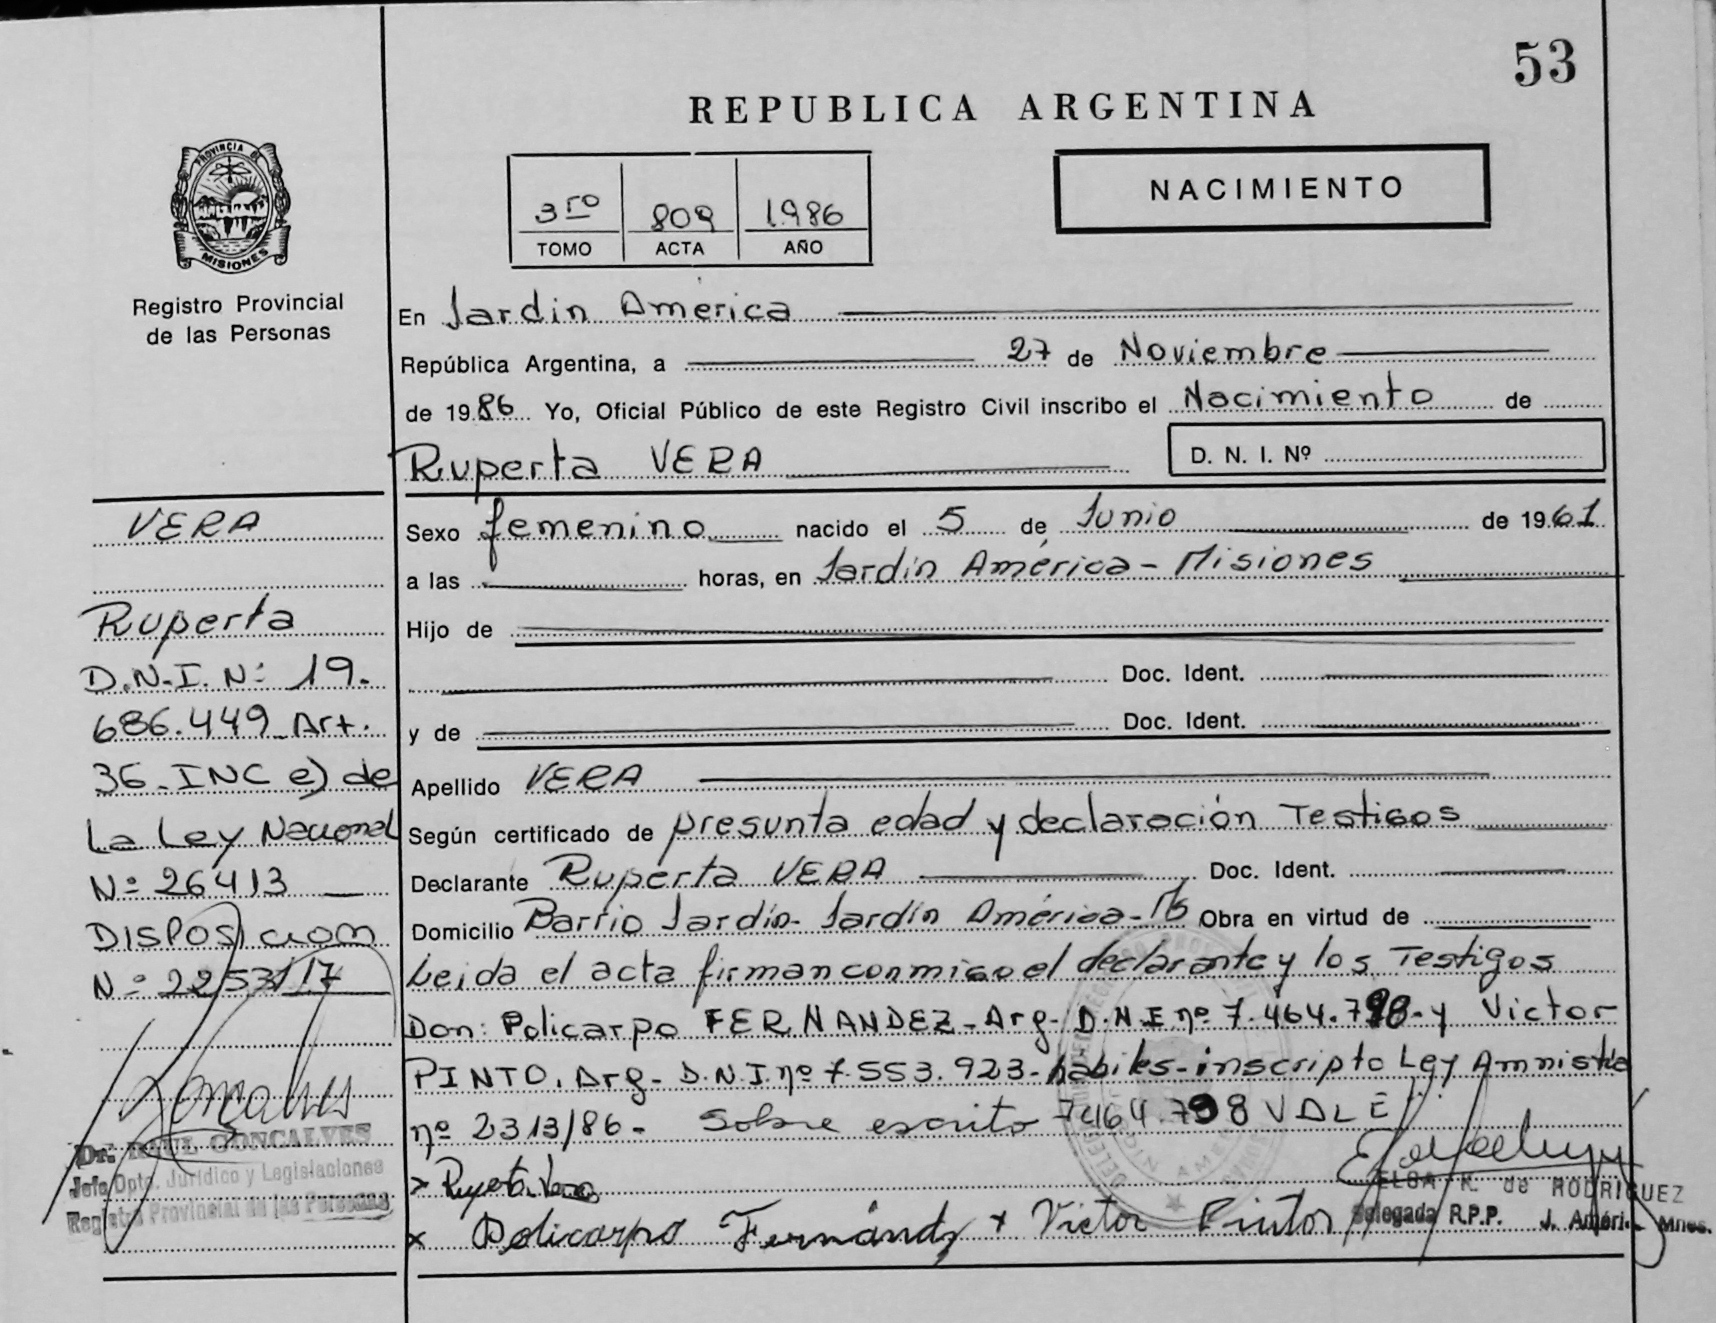 53
REPUBLICA ARGENTINA
PROVINCIA DE
MISIONES
Registro Provincial
de las Personas
3ro 809 1986
TOMO ACTA AÑO
NACIMIENTO
En Jardín América
República Argentina, a 27 de Noviembre
de 1986 Yo, Oficial Público de este Registro Civil inscribo el Nacimiento de
Ruperta VERA D. N. I. Nº
Sexo femenino nacido el 5 de Junio de 1961
a las horas, en Jardín América - Misiones
Hijo de
Doc. Ident.
y de Doc. Ident.
Apellido VERA
Según certificado de presunta edad y declaración Testigos
Declarante Ruperta VERA Doc. Ident.
Domicilio Barrio Jardín - Jardín América - Ms Obra en virtud de
Leida el acta firman conmigo el declarante y los Testigos
Don: Policarpo FERNANDEZ - Arg - D.N.I nº 7.464.798 - y Victor
PINTO. Arg - D.N.I. nº 7.553.923 - hábiles - inscripto Ley Amnistía
nº 2313/86 - Sobre escrito 7464.798 VALE
x Ruperta Vera
x Policarpo Fernández x Victor Pintos
ELSA K. de RODRIGUEZ
Delegada R.P.P. J. Améri. Mnes.
VERA
Ruperta
D.N.I. Nº 19.
686.449 Art.
36 - INC e) de
La Ley Nacional
Nº 26413
DISPOSICION
Nº 2253/17
Dr. RAUL GONCALVES
Jefe Dpto. Jurídico y Legislaciones
Registro Provincial de las Personas